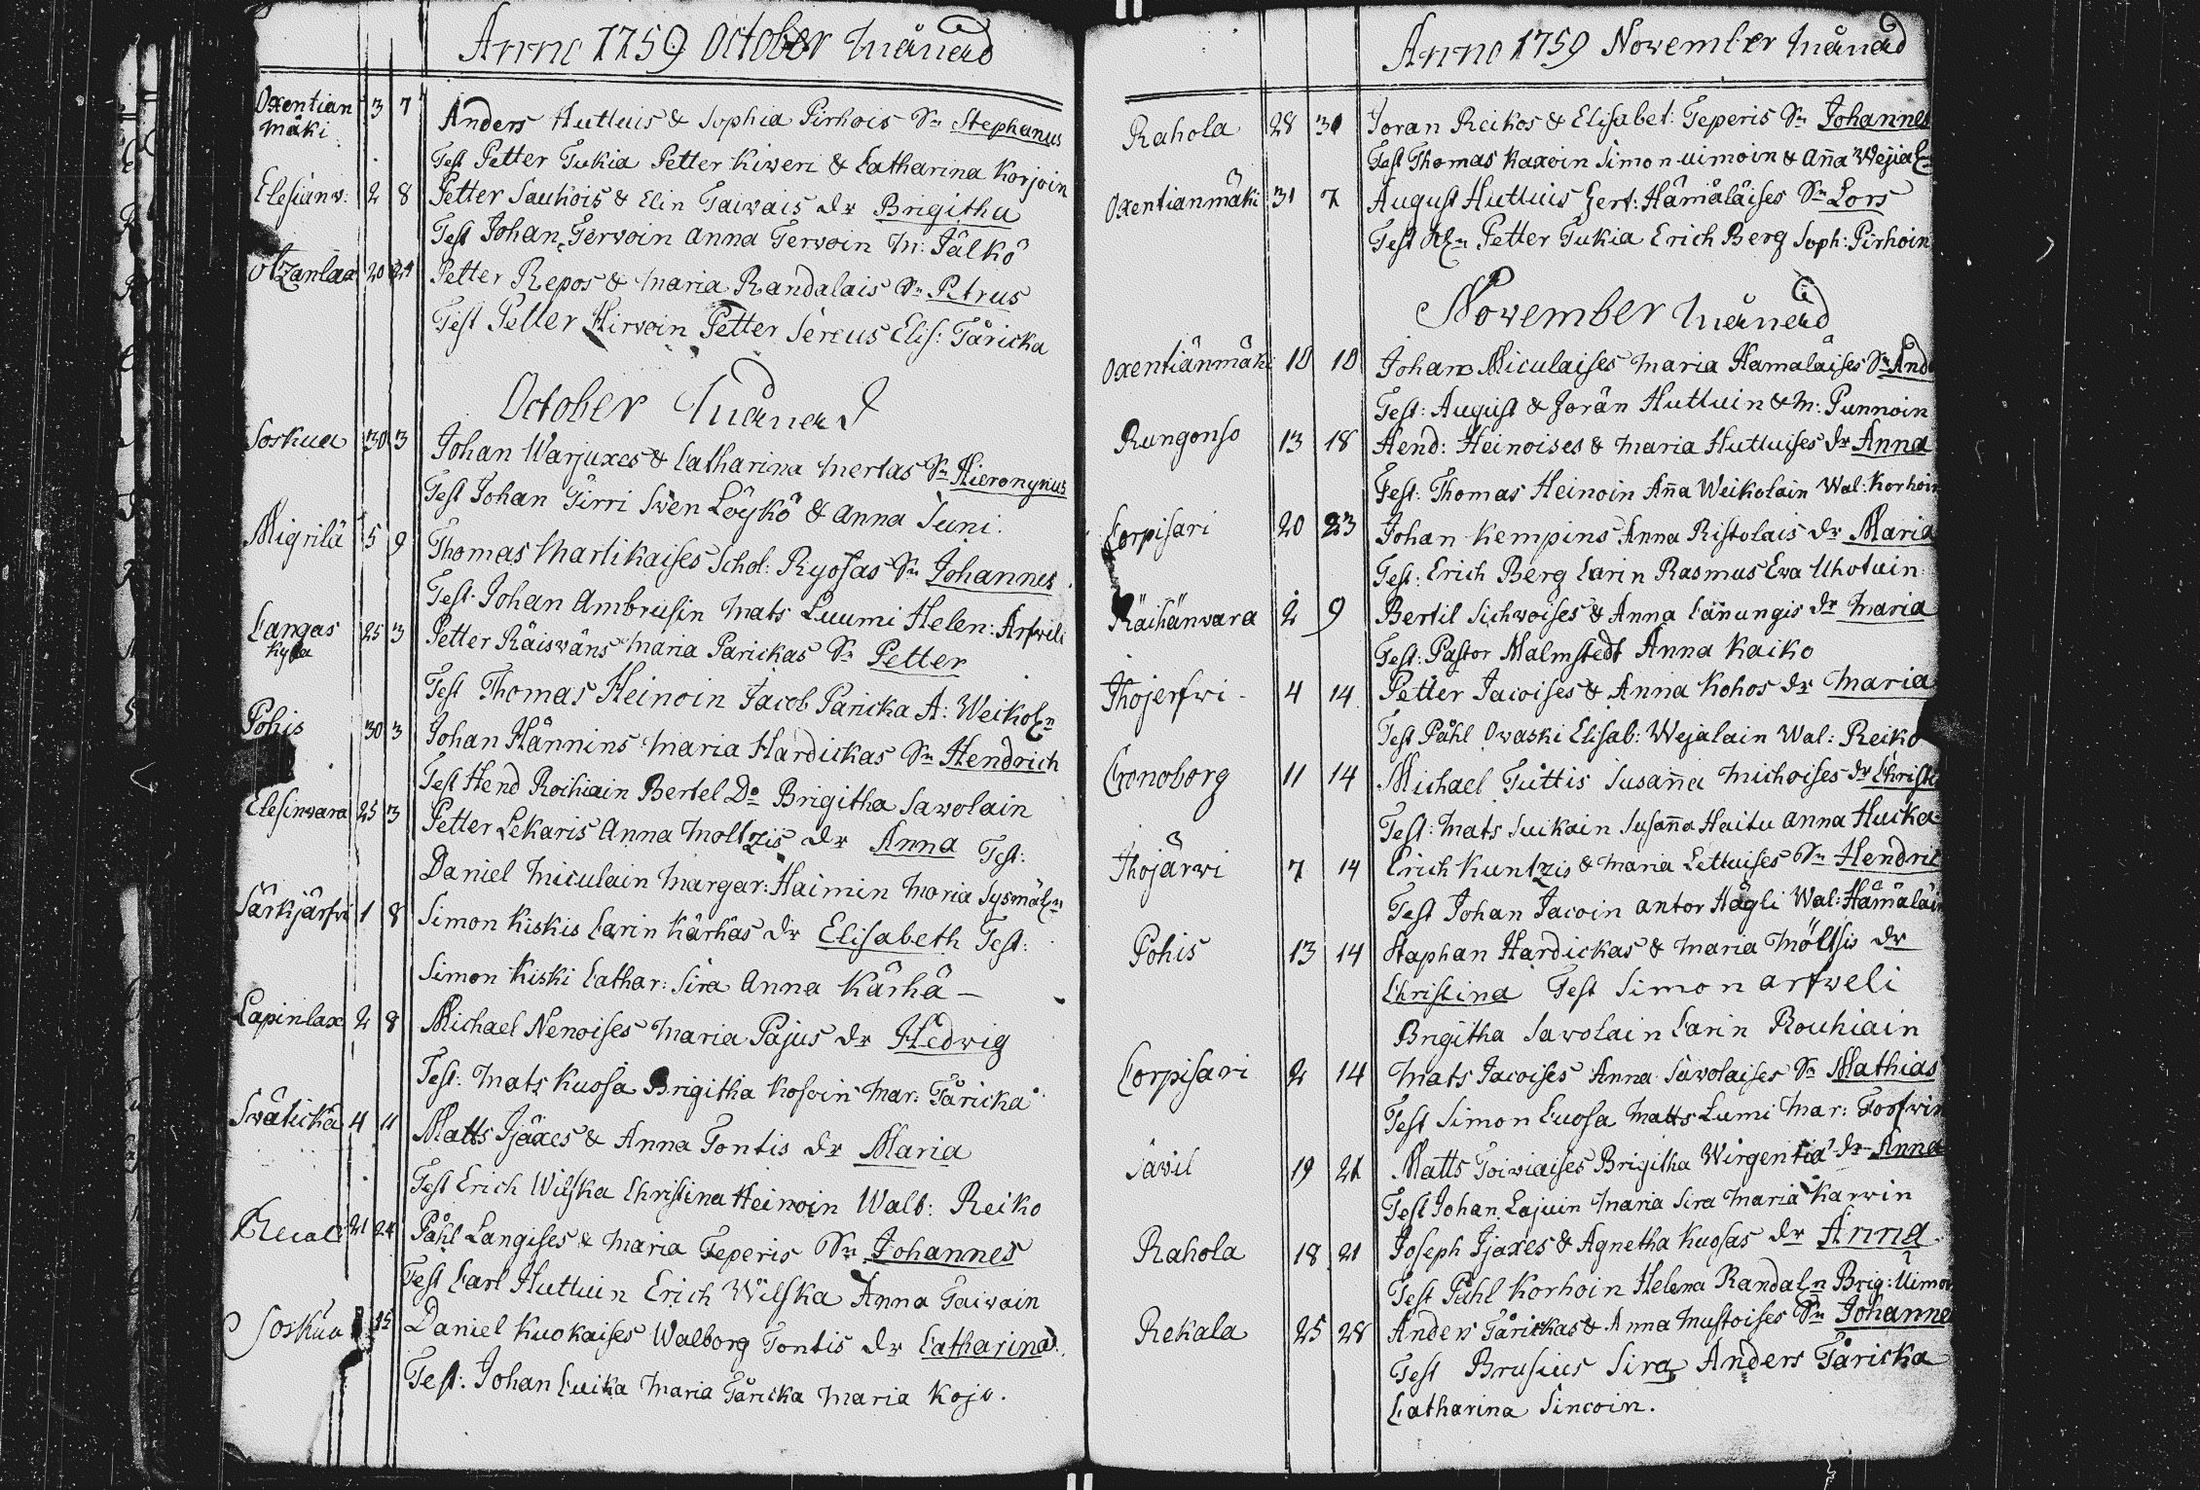 Anno 1759 October Månad
Oxentian 3 7 Anders Huttuis & Sophia Pirhois Sn Stephanus
mäki Test Petter Tukia Petter Kiweri & Catharina Korjoin
Elesianv: 2 8 Petter Saukois & Elin Taiwais dr Brigitha
Test Johan Terwoin Anna Terwoin M: Jälkö
Otzanlax 20 24 Petter Repos & Maria Randalais Sn Petrus
Test Petter Hirwoin Petter Sereus Elis: Tåricka
October Månad
Soskua 30 3 Johan Warjuxes & Catharina Mertas Sn Hieronymus
Test Johan Tirri Swen Löykö & Anna Suni.
Migrilä 5 9 Thomas Martikaises Schol: Ryosas Sn Johannes
Test Johan Ambrusin Mats Luumi Helen: Arfwili
Cangas 25 3 Petter Räiswäns Maria Parickas Sn Petter
kylla Test Thomas Heinoin Jacob Paricka A: Weikoln
Pohis 30 3 Johan Hännins Maria Hardickas Sn Hendrich
Test Hend Rochiain Bertel Do Brigitha Sawolain
Elesinvara 25 3 Petter Lekaris Anna Moltzis dr Anna Test:
Daniel Miculain Margar: Haimin Maria Sysmäln
Särkjärfwi 1 8 Simon Kiskis Carin Kärhäs dr Elisabeth Test:
Simon Kiski Cathar: Sira Anna Kärhä —
Lapinlax 2 8 Michael Nenoises Maria Pajus dr Hedwig
Test: Mats Kuosa Brigitha Kosoin Mar: Tåricka
Swätickä 4 11 Matts Ijäxes & Anna Tontis dr Maria
Test Erich Wilska Christina Heinoin Walb: Reiko
21 24 Påhl Langises & Maria Teperis Sn Johannes
Test Carl Huttuin Erich Wilska Anna Taiwain
Soskua 15 Daniel Kuokaises Walborg Tontis dr Catharina
Test: Johan Cuika Maria Tåricka Maria Kojo.
Anno 1759 November Månad
Rahola 28 30 Joran Reikos & Elisabet: Teperis Sn Johannes
Test Thomas Kaxoin Simon Uimoin & Anna Wejialn
Oxentianmäki 31 7 August Huttuis Gert: Hämäläises Sn Lors
Test Petter Tukia Erich Berg Soph: Pirhoin
November Månad
Oxentiänmäki 10 10 Johan Miculaises Maria Hamaläises Sn And
Test: August & Jorän Huttuin & M: Punnoin
Rungonso 13 18 Hend: Heinoises & Maria Huttuises dr Anna
Test: Thomas Heinoin Anna Weikolain Wal: Korhoin
Corpisari 20 23 Johan Kempins Anna Ristolais dr Maria
Test: Erich Berg Carin Rasmus Ewa Uhotuin
Räihänvara 2 9 Bertil Sichwoises & Anna Cänungis dr Maria
Test: Pastor Malmstedt Anna Kaiko
Ihojerfwi 4 14 Petter Jacoises & Anna Kohos dr Maria
Test Påhl Owaski Elisab: Wejalain Wal: Reiko
Cronoborg 11 14 Michael Tuttis Susanna Michoises dr Christ
Test: Mats Suikain Susanna Haitu Anna Huicka
Ihojärwi 7 14 Erich Kuntzis & Maria Lettuises Sn Hendric
Test Johan Jacoin Antor Hägli Wal: Hämäläin
Pohis 13 14 Staphan Hardickas & Maria Möltsis dr
Christina Test Simon Arfweli
Brigitha Sawolain Carin Rouhiain
Corpisari 2 14 Mats Jacoises Anna Sawolaises Sn Mathias
Test Simon Cuosa Matts Lumi Mar: Torfwin
Sawil 19 21 Matts Toiwiaises Brigitha Wirgentia dr Anna
Test Johan Lajuin Maria Sira Maria Karwin
Rahola 18 21 Joseph Ijaxes & Agnetha Kuosas dr Anna
Test Påhl Korhoin Helena Randaln Brig: Uimo
Rekala 25 28 Anders Tårickas & Anna Mustoises Sn Johanne
Test Brusius Sira Anders Tåricka
Catharina Sincoin.